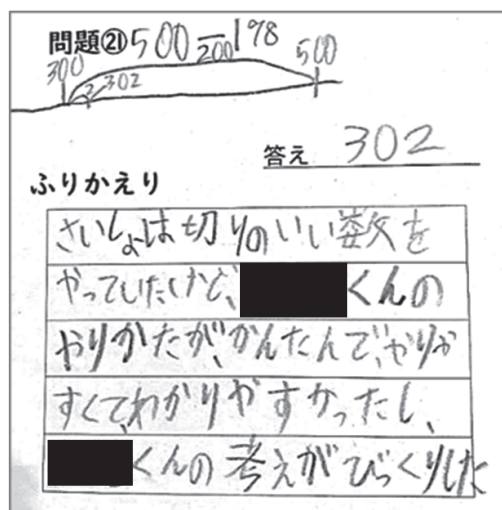 問題㉑ 500-198
300 200 500
2 302
答え 302
ふりかえり
さいしょは切りのいい数を
やっていたけど、くんの
やりかたが、かんたんで、やりや
すくて、わかりやすかったし、
くんの考えがびっくりした